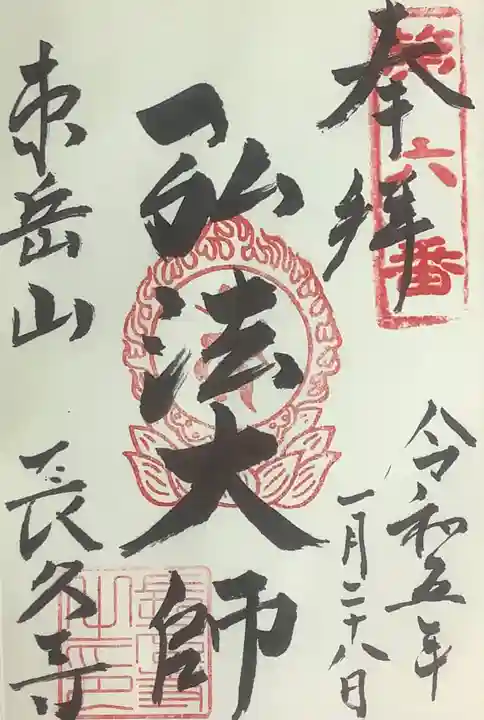 奉拝
第六番
令和五年
一月二十八日
弘法大師
東岳山 長久寺